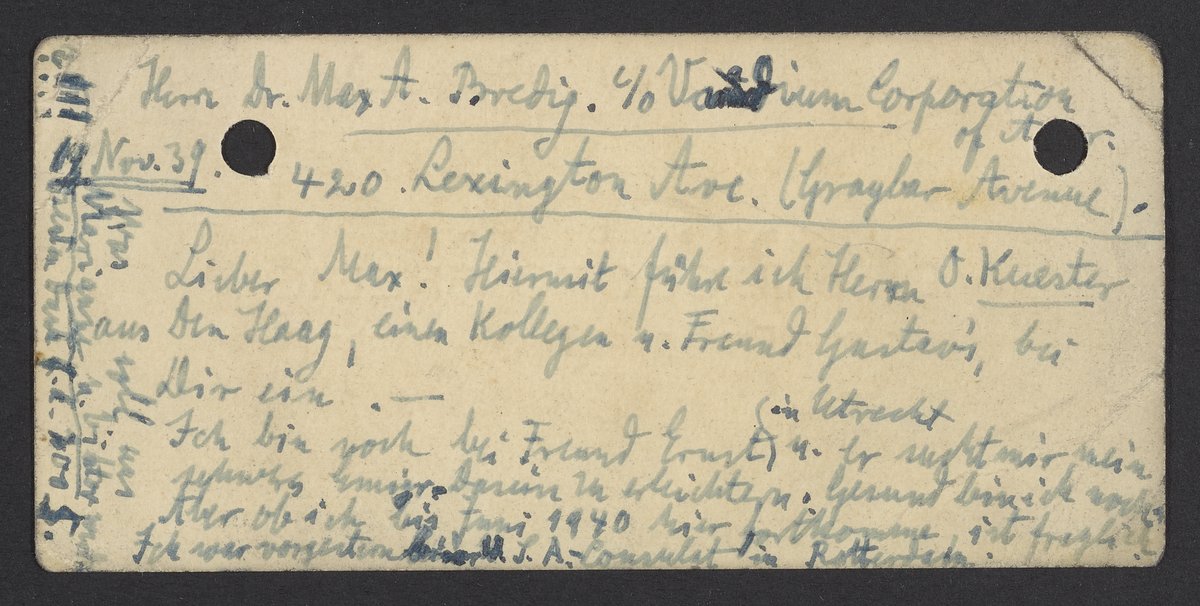 Herrn Dr. Max A. Bredig. c/o Vanadium Corporation
of Amer.
Nov. 39.
420. Lexington Ave. (Graybar Avenue).
Lieber Max! Hiermit führe ich Herrn O. Kuester
aus Den Haag, einen Kollegen u. Freund Gustav's, bei
Dir ein. —
Ich bin noch bei Freund Ernst (in Utrecht) u. er sucht mir mein
schweres Emigr. Dasein zu erleichtern. Gesund bin ich noch
Aber ob ich bis Juni 1940 hier fortkomme, ist fraglich
Ich war vorgestern U.S.A.-Consulat in Rotterdam.